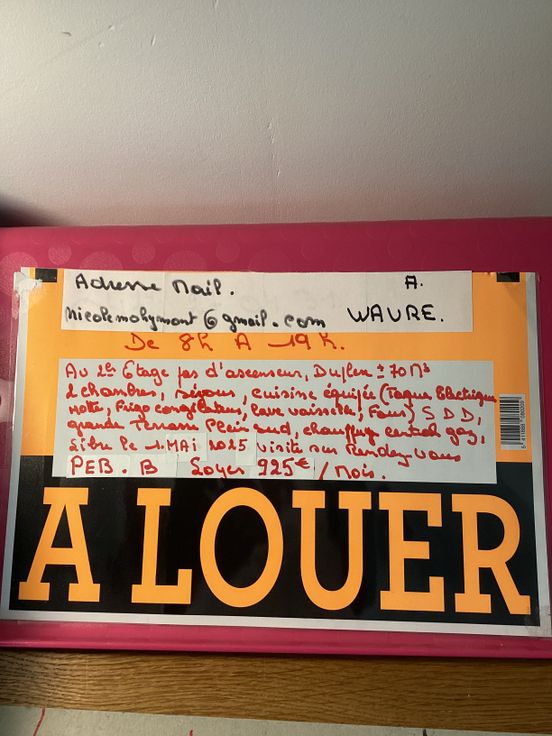 Adresse Mail. A.
nicolemohymont@gmail.com WAVRE.
De 8h A 19h.
Au 2è Etage pas d'ascenseur, Duplex ± 70 M²
2 chambres, séjour, cuisine équipée (Taque Electrique,
Hotte, Frigo congélateur, Lave vaisselle, Four) S D D,
grande Terrasse Plein sud, chauffage central gaz,
Libre le 1 MAI 2025 visite sur Rendez-vous
PEB. B Loyer 925€ / Mois.
A LOUER